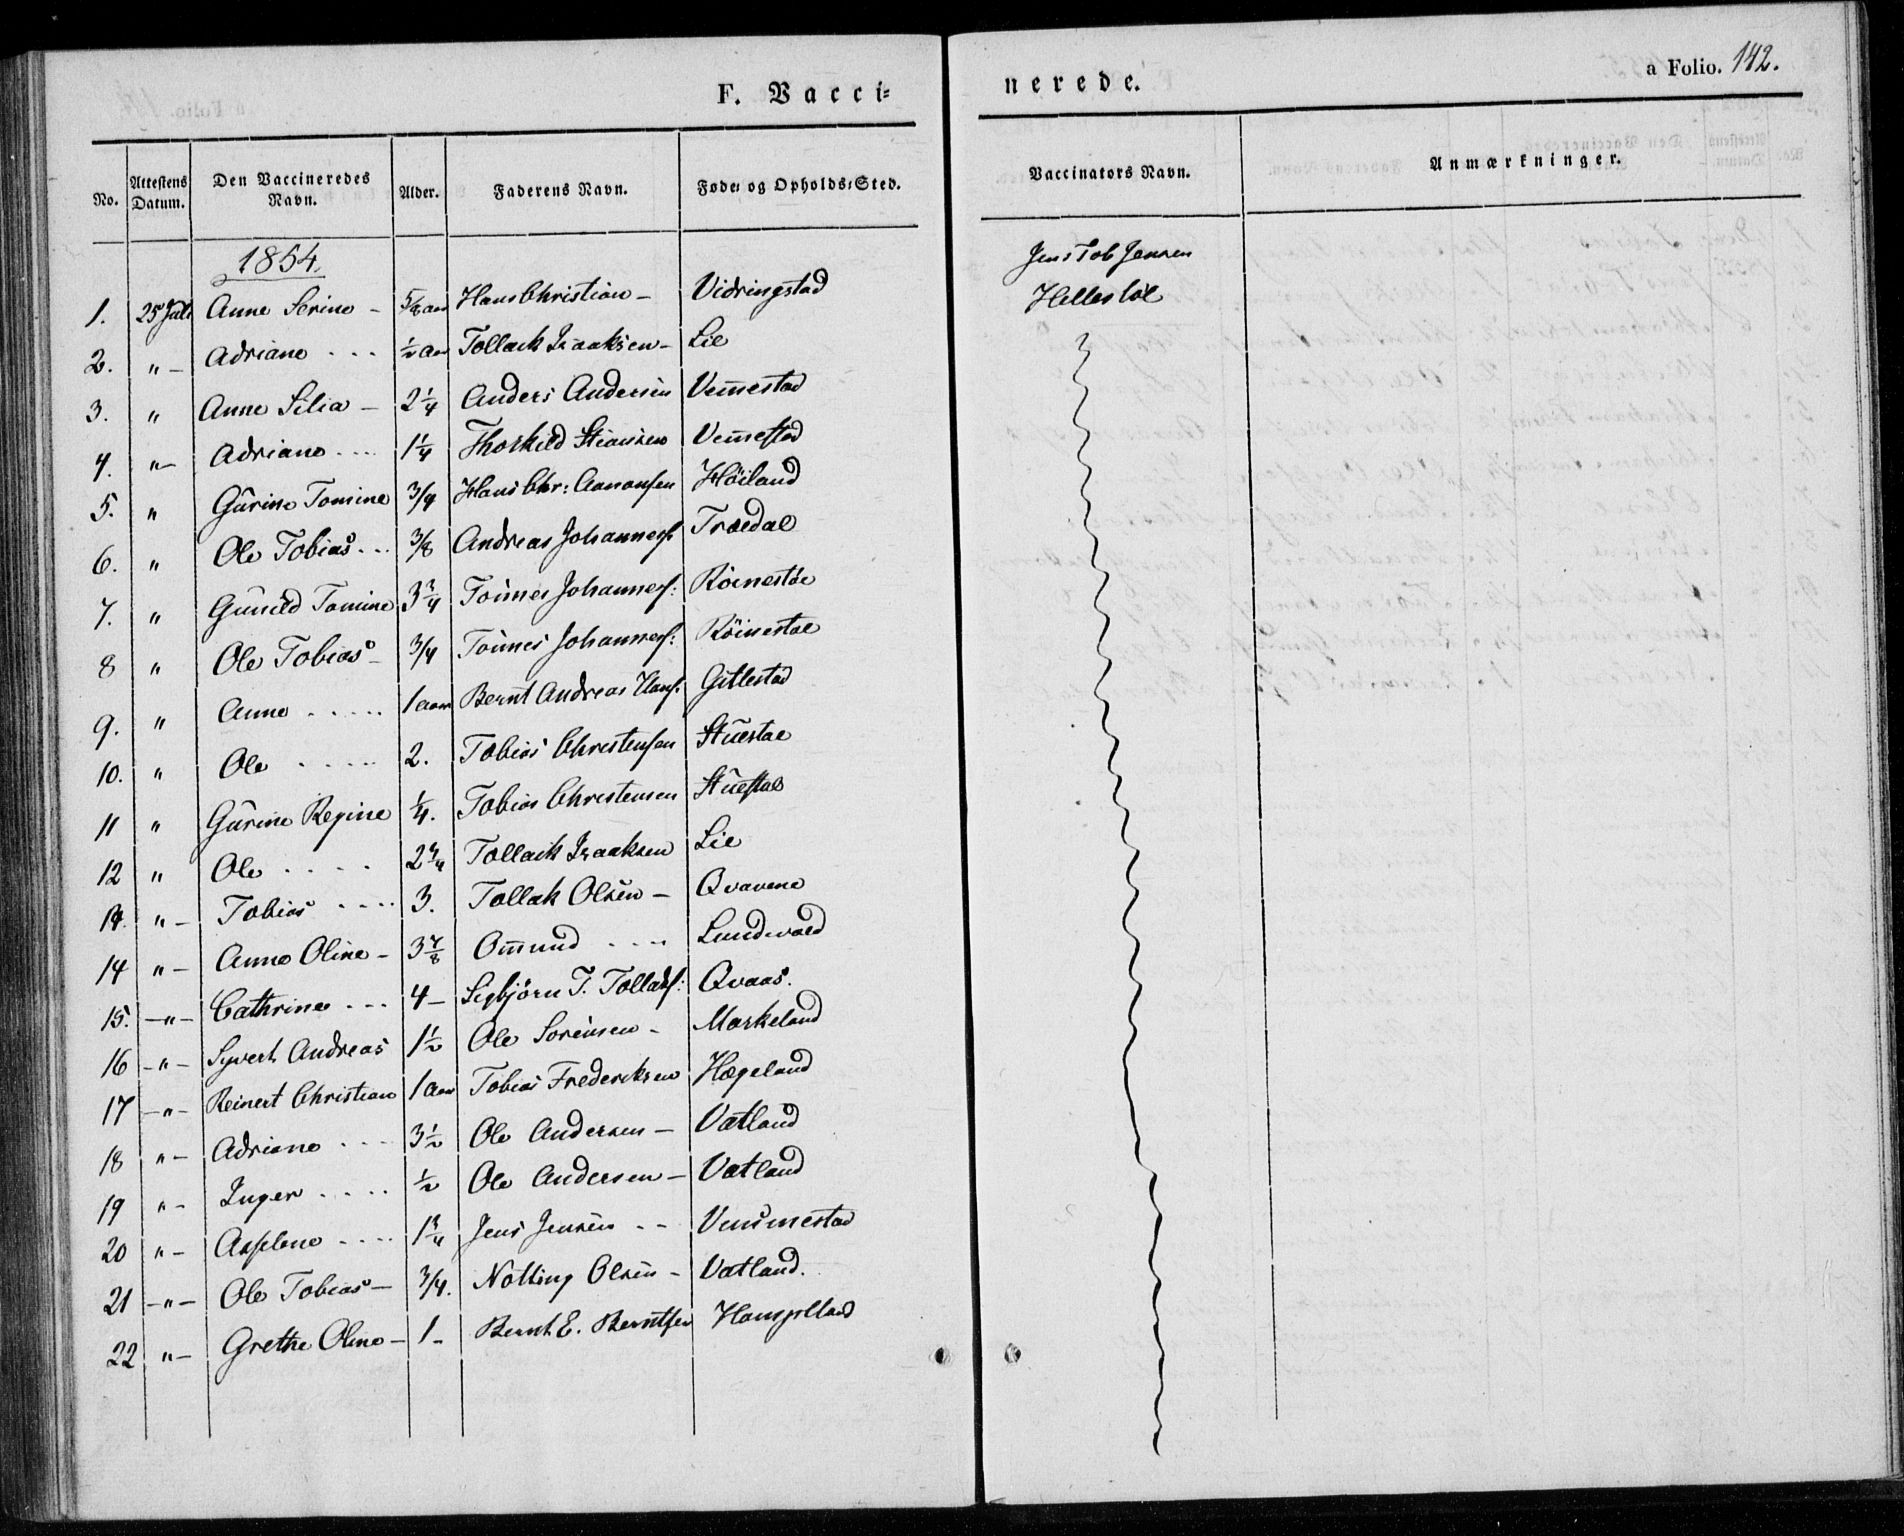 F. Vacci=
nerede.
a Folio. 142.
No. Attestens Datum. Den Vaccineredes Navn. Alder. Faderens Navn. Føde= og Opholds=Sted. Vaccinators Navn. Anmærkninger.
1854.
1. 25 Juli Anne Serine - 5/8 aar Hans Christian - Vidringstad Jens Tob Jensen
Hellestøl
2. " - Adriane ... ½ aar Tollack Isaaksen - Lie
3. " Anne Silia - 2¼ Anders Andersen Vem̄estad
4. " - Adriane ... 1¼ Thorkild Stiansen Vem̄estad
5. " Gurine Tomine 3/4 Hans Chr: Aanonsen Höiland
6. " Ole Tobias ... 3/8 Andreas Johannes: Trædal
7. " Gunild Tomine 3¾ Tönnes Johannes: Röinestöe
8 " Ole Tobias - 3/4 Tönnes Johannes: Röinestöe
9. " Anne ..... 1 aar Bernt Andreas Hans: Gitlestad
10. " Ole ..... 2. Tobias Christensen Stuestøe
11 " Gurine Regine ¼. Tobias Christensen Stuestøe
12 " Ole .... 2¾ Tollack Isaaksen Lie
14. " - Tobias .... 3. Tollak Olsen - Qvavene
14 " - Anne Oline - 3 7/8 Om̄und .... Lundevold
15. - " - Cathrine ... 4 - Sigbjörn T. Tollaks: Qvaas.
16 - " - Syvert Andreas 1½ Ole Sörensen - Markeland
17 - " - Reinert Christian 1 aar Tobias Frederiksen Hægeland
18 " - Adriane ... 3½ Ole Andersen - Vatland
19 " - Inger .... ½ Ole Andersen - Vatland
20 " - Asselene .... 1¾ Jens Jensen - - Vem̄mestad
21 - " - Ole Tobias - 3/4. Notting Olsen - Vatland.
22 " - Grethe Oline - 1 - Bernt E. Berntsen